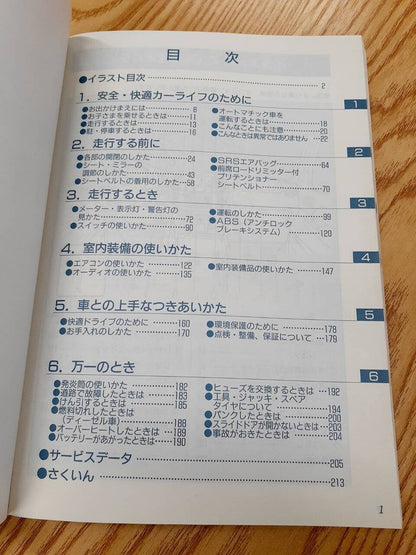 目 次
●イラスト目次 2
1. 安全・快適カーライフのために 1
●お出かけまえには 8
●お子さまを乗せるときは 11
●走行するときは 13
●駐・停車するときは 16
●オートマチック車を
運転するときは 18
●こんなことにも注意 20
●こんなときは異常ではありません 22
2. 走行する前に 2
●各部の開閉のしかた 24
●シート・ミラーの
調節のしかた 43
●シートベルトの着用のしかた 58
●SRSエアバッグ 64
●前席ロードリミッター付
プリテンショナー
シートベルト 70
3. 走行するとき 3
●メーター・表示灯・警告灯の
見かた 72
●スイッチの使いかた 90
●運転のしかた 99
●ABS(アンチロック
ブレーキシステム) 120
4. 室内装備の使いかた 4
●エアコンの使いかた 122
●オーディオの使いかた 135
●室内装備品の使いかた 147
5. 車との上手なつきあいかた 5
●快適ドライブのために 160
●お手入れのしかた 170
●環境保護のために 178
●点検・整備、保証について 179
6. 万一のとき 6
●発炎筒の使いかた 182
●道路で故障したときは 183
●けん引するときは 185
●燃料切れしたときは
(ディーゼル車) 188
●オーバーヒートしたときは 189
●バッテリーがあがったときは 190
●ヒューズを交換するときは 192
●工具・ジャッキ・スペア
タイヤについて 194
●パンクしたときは 200
●スライドドアが開かないときは 203
●事故がおきたときは 204
●サービスデータ 205
●さくいん 213
1